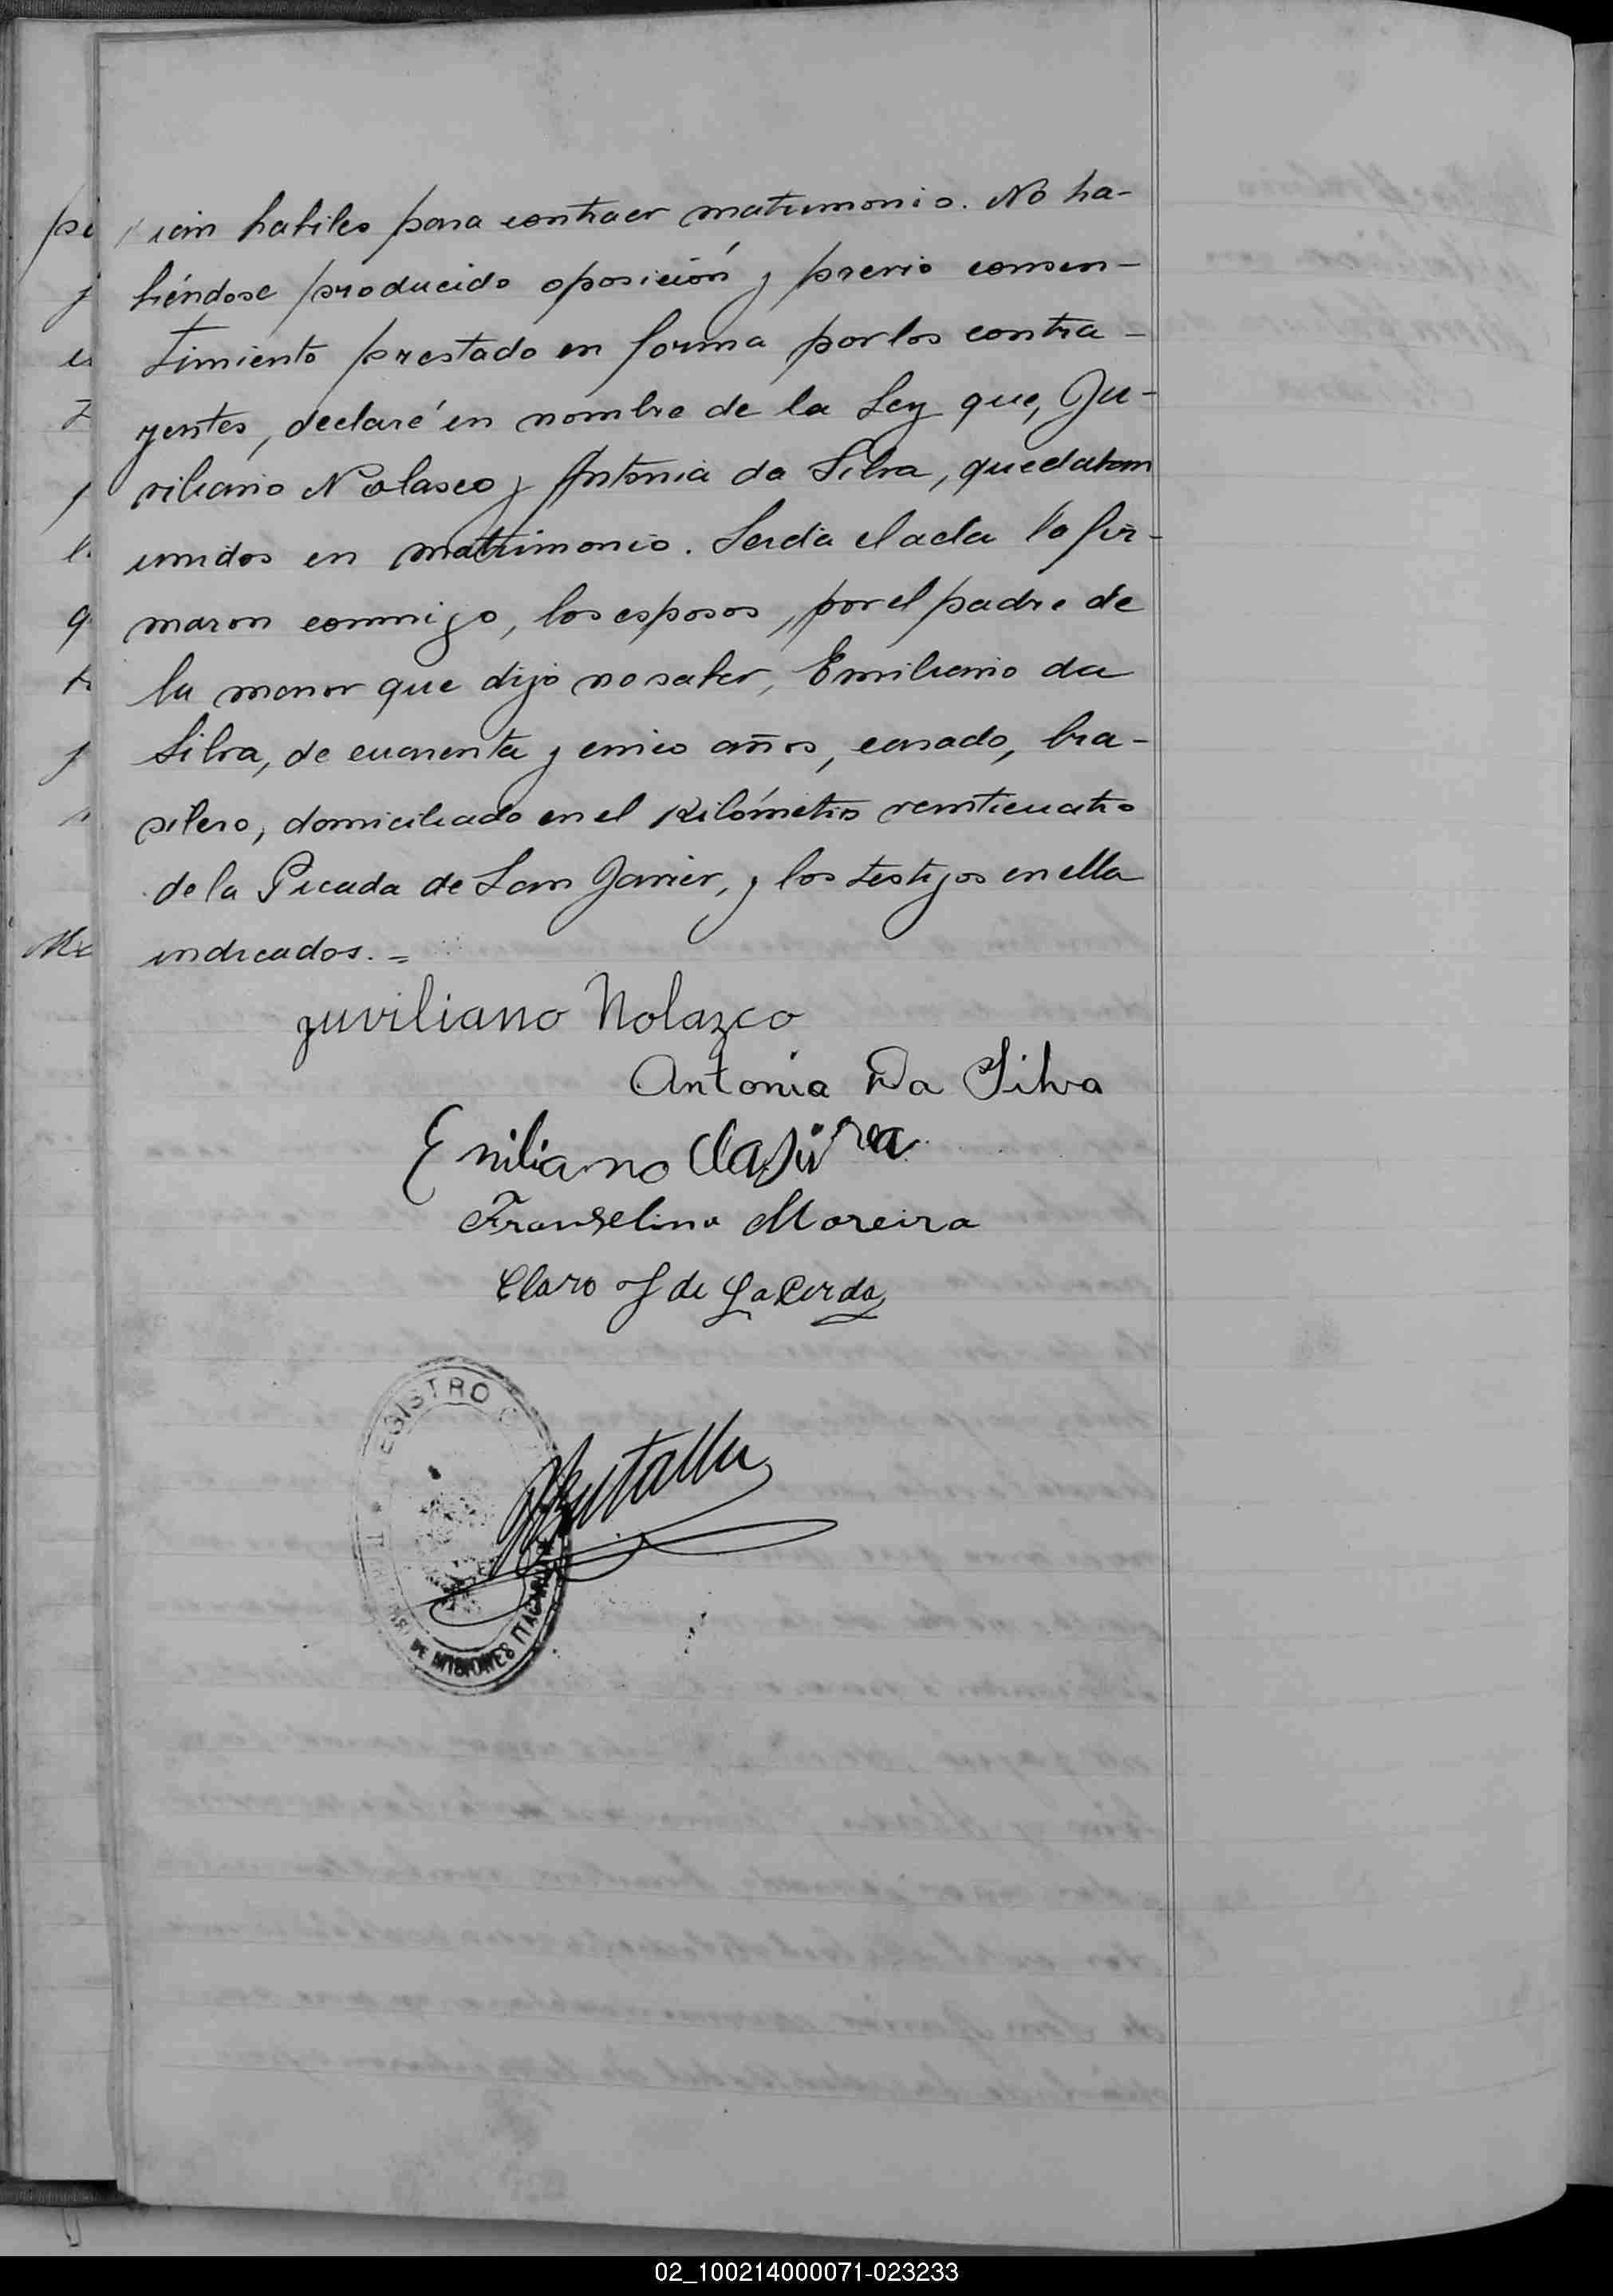 cian habiles para contraer matrimonio. No ha-
biéndose producido oposición y previo consen-
timiento prestado en forma por los contra-
yentes, declaré en nombre de la Ley que, Ju-
viliano Nolasco y Antonia da Silva, quedaban
unidos en matrimonio. Leida el acta la fir-
maron conmigo, los esposos, por el padre de
la menor que dijo no saber, Emiliano da
Silva, de cuarenta y cinco años, casado, bra-
silero, domiciliado en el Kilómetro veinticuatro
de la Picada de San Javier, y los testigos en ella
indicados. =
juviliano Nolazco
Antonia Da Silva
Emiliano da Silva
Franselino Moreira
Claro J de LaCerda
REGISTRO
DE MISIONES ITACARUARE
02_100214000071-023233